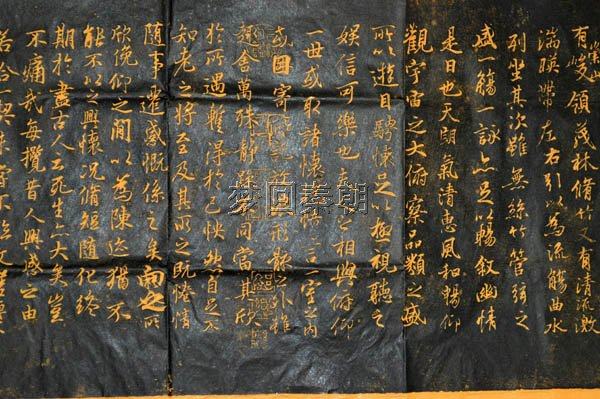 有崇山
有峻領茂林脩竹又有清流激
湍暎帶左右引以為流觴曲水
列坐其次雖無絲竹管弦之
盛一觴一詠亦足以暢敘幽情
是日也天朗氣清惠風和暢仰
觀宇宙之大俯察品類之盛
所以遊目騁懷足以極視聽之
娛信可樂也夫人之相與俯仰
一世或取諸懷抱悟言一室之內
或因寄所託放浪形骸之外雖
趣舍萬殊靜躁不同當其欣
於所遇暫得於己快然自足不
知老之將至及其所之既惓情
隨事遷感慨係之矣向之所
欣俛仰之間以為陳迹猶不
能不以之興懷況脩短隨化終
期於盡古人云死生亦大矣豈
不痛哉每攬昔人興感之由
若合一契未嘗不臨文
梦回秦朝